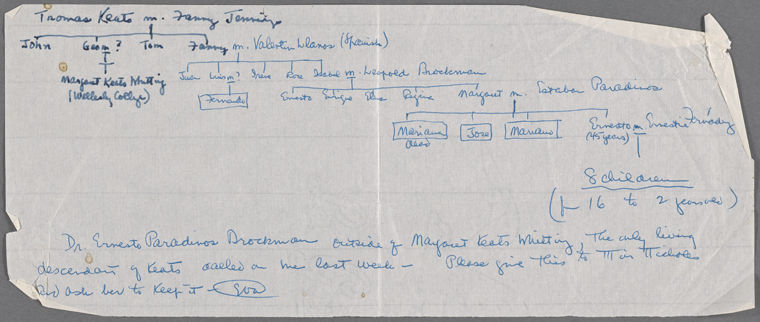 Thomas Keats m. Fanny Jennings
John Geo m ? Tom Fanny m. Valentin Llanos (Spanish)
Margaret Keats Whitting
(Wellesly College)
Juan Luis m ? Irene Rosa Isabel m. Leopold Brockman
Fernando
Ernesto Enrique Elsa Regina Margaret m. Esteban Paradinos
Mariana Jose Mariano Ernesto m. Ernestine
(dead) (45 years)
8 children
(1- 16 to 2 years old)
Dr. Ernesto Paradinos Brockman outside of Margaret Keats Whitting, the only living
descendant of Keats called on me last week – Please give this to Miss Nicholes
and ask her to keep it –